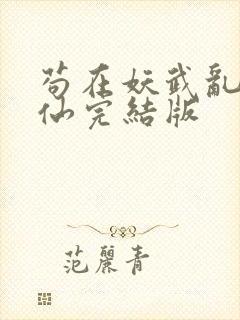 苟在妖武亂
仙完結版
范麗青